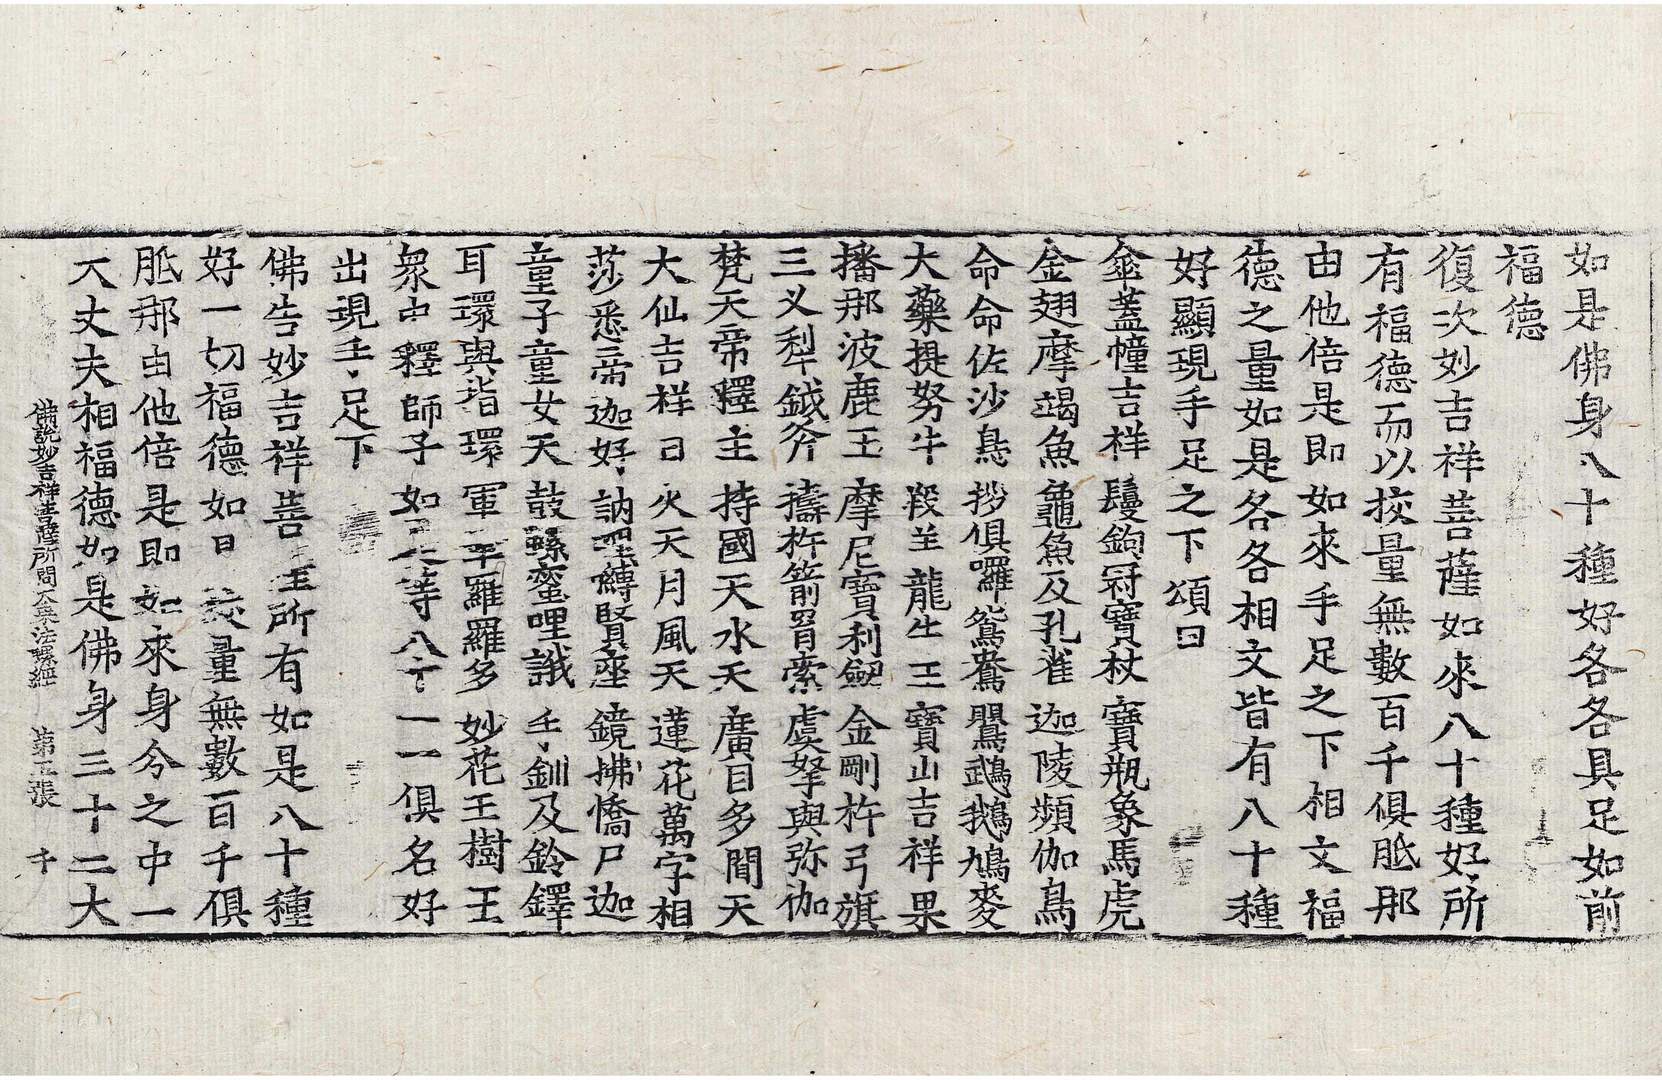 如是佛身八十種好各各具足如前
福德
復次妙吉祥菩薩如來八十種好所
有福德而以挍量無數百千俱胝那
由他倍是即如來手足之下相文福
德之量如是各各相文皆有八十種
好顯現手足之下頌曰
傘蓋幢吉祥 鬘鉤冠寶杖 寶瓶象馬虎
金翅摩竭魚 龜魚及孔雀 迦陵頻伽鳥
命命佐沙鳥 拶俱囉鴛鴦 鸎鵡鵝鳩麥
大藥提努牛 羖羊龍牛王 寶山吉祥果
播那波鹿王 摩尼寶利劒 金剛杵弓旗
三义犁鉞斧 擣杵箭罥索 虞拏與弥伽
梵天帝釋主 持國天水天 廣目多聞天
大仙吉祥日 火天月風天 蓮花萬字相
莎悉帝迦好 訥嚩賢座 鏡拂憍尸迦
童子童女天 鼓螺蠻哩誐 手釧及鈴鐸
耳環與指環 軍羅羅多 妙花王樹王
衆中釋師子 如等八十 一一俱名好
出現手足下
佛告妙吉祥菩所有如是八十種
好一切福德如日挍量無數百千俱
胝那由他倍是即如來身今之中一
大丈夫相福德如是佛身三十二大
佛說妙吉祥菩薩所問大乘法螺經 第五張 千